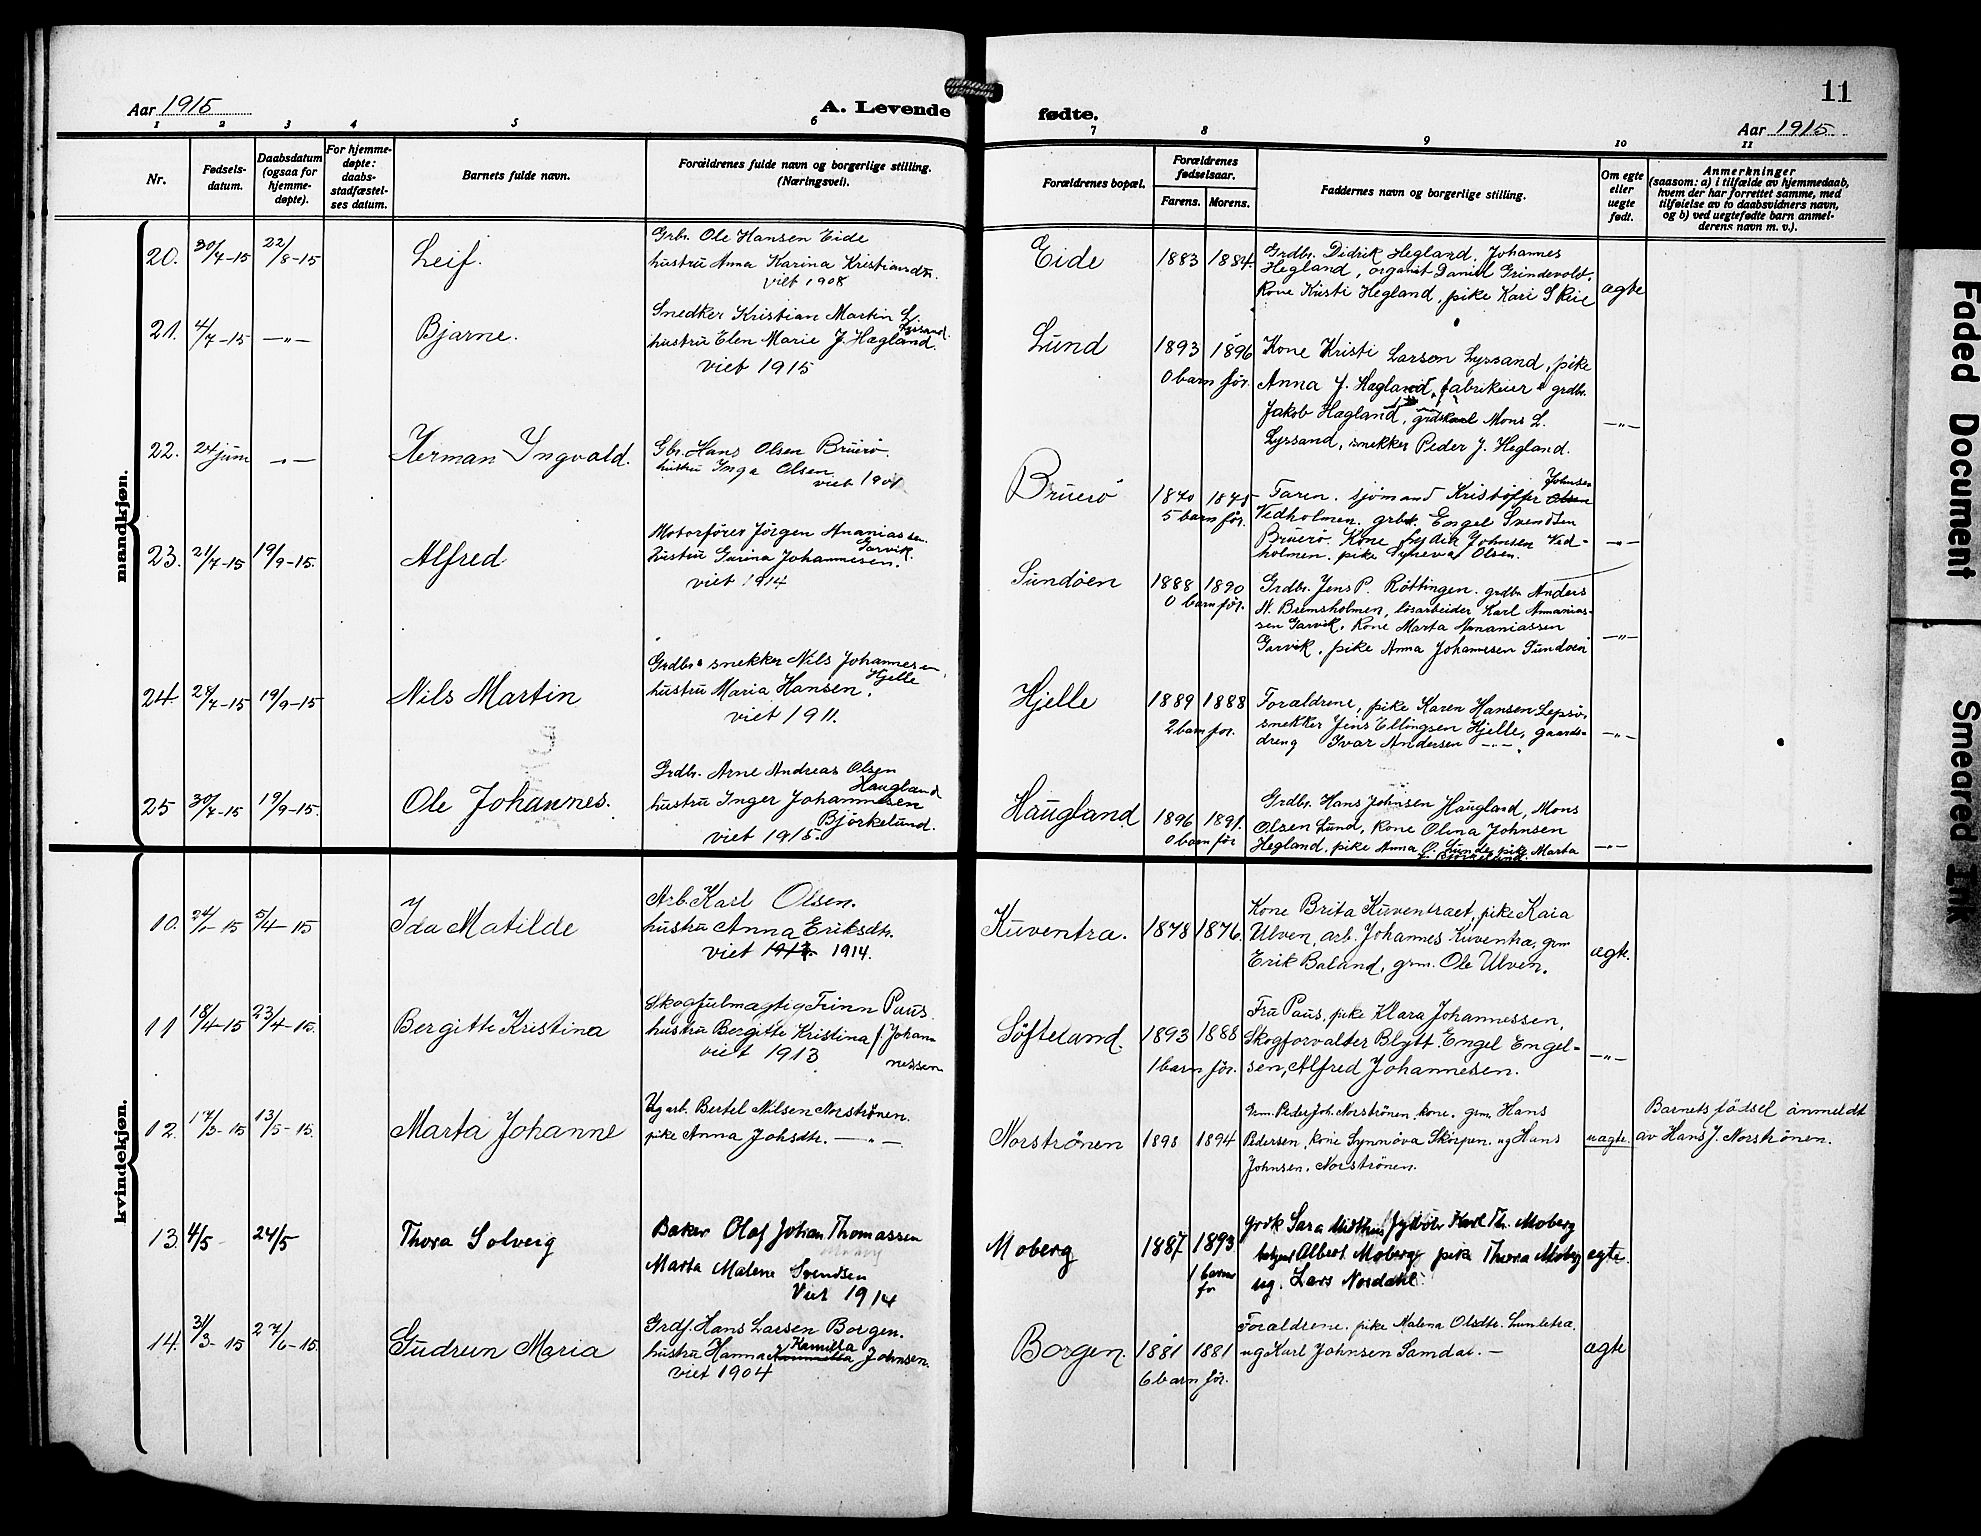 11
Aar 1915
A. Levende
fødte.
Aar 1915
1 2 3 4 5 6 7 8 9 10 11
Nr.
Fødsels-
datum.
Daabsdatum
(ogsaa for
hjemme-
døpte).
For hjemme-
døpte:
daabs-
stadfæstel-
ses datum.
Barnets fulde navn.
Forældrenes fulde navn og borgerlige stilling.
(Næringsvei).
Forældrenes bopæl.
Forældrenes
fødselsaar.
Farens. Morens.
Faddernes navn og borgerlige stilling.
Om egte
eller
uegte
født.
Anmerkninger
(saasom: a) i tilfælde av hjemmedaab,
hvem der har forrettet samme, med
tilføielse av to daabsvidners navn,
og b) ved uegtefødte barn anmel-
derens navn m. v.).
mandkjøn.
20. 30/7-15 22/8-15
Leif.
Grbr. Ole Hansen Eide
hustru Anna Karina Kristiansdtr.
viet 1908
Eide
1883 1884.
Grdbr. Didrik Hegland, Johannes
Hegland, organist Daniel Grindevold,
Kone Kristi Hegland, pike Kari Skeie
ægte
21. 4/7-15 -"-
Bjarne.
Snedker Kristian Martin L.
Lyssand
hustru Elen Marie J. Hægland.
viet 1915
Lund
1893 1896
0 barn før.
Kone Kristi Larsen Lyssand, pike
Anna J. Hagland, fabrikeier & grdbr.
Jakob Hagland, Mons L.
Lyssand, snekker Peder J. Hegland.
-"-
22. 24 juni -"-
Herman Ingvald.
Gbr. Hans Olsen Bruerö
hustru Inga Olsen
viet 1901
Bruerö
1870 1875
5 barn før.
Faren. sjömand Kristoffer Johnsen
Vedholmen. grbr. Engel Svendsen
Bruerö. Kone Johnsen Ved-
holmen. pike Syneva Olsen.
-"-
23. 21/7-15 19/9-15.
Alfred
Motorfører Jörgen Ananiassen
Garvik.
hustru Gurina Johannesen.
viet 1914
Sundöen
1888 1890
0 barn før.
Grdbr. Jens P. Röttingen. grdbr. Anders
N. Bremsholmen, lösarbeider Karl Annanias-
sen Garvik, Kone Marta Ananiassen
Garvik, pike Anna Johannesen Sundöen
-"-
24. 27/7-15 19/9-15
Nils Martin
Grdbr. & snekker Nils Johannesen
Hjelle
hustru Maria Hansen.
viet 1911.
Hjelle
1889 1888
2 barn før.
Forældrene, pike Karen Hansen Lepsö,
snekker Jens Ellingsen Hjelle, gaards-
dreng Ivar Andersen -"-.
-"-
25 30/7-15 19/9-15.
Ole Johannes.
Grdbr. Arne Andreas Olsen
Haugland
hustru Inger Johannesen
Björkelund.
viet 1915
Haugland
1896 1891.
0 barn før
Grdbr. Hans Johnsen Haugland, Mons
Olsen Lund, Kone Olina Johnsen
Hegland, pike Anna O. Lunde, pike Marta
J. Björkelund.
-"-
kvindekjøn.
10. 24/1-15 5/4-15
Ida Matilde
Arb. Karl Olsen.
hustru Anna Eriksdtr.
viet 1913 1914.
Kuventræ.
1878 1876.
Kone Brita Kuventræet, pike Kaia
Ulven, arb. Johannes Kuventræ, grm
Erik Baland, grm. Ole Ulven.
ægte.
11 18/4-15 23/4-15.
Bergitte Kristina
Skogfulmægtig Finn Paus.
hustru Bergitte Kristina f Johan-
nessen
viet 1913
Søfteland.
1893 1888
1 barn før.
Fru Paus, pike Klara Johannessen,
Skogforvalter Blytt. Engel Engel-
sen, Alfred Johannesen.
-"-
12. 17/3-15 13/5-15.
Marta Johanne
Ug arb. Bertel Nilsen Norströnen.
pike Anna Johsdtr. -"-
Norströnen
1898 1894
Grm. Peder Joh. Norströnen, kone. grm. Hans
Pedersen, kone Synnöva Skorpen. ug Hans
Johnsen. Norströnen.
uægte.
Barnets födsel anmeldt
av Hans J. Norströnen.
13. 4/5 24/5
Thora Solveig
Baker Olaf Johan Thomassen
Moberg
Marta Malene Svendsen
Viet 1914
Moberg
1887 1893
1 barn
før
Grdk Sara Midthus Karl Th. Moberg
Albert Moberg pike Thora Moberg
ug. Lars Nordahl.
ægte.
14. 31/3-15 27/6-15.
Gudrun Maria
Grdf. Hans Larsen Borgen.
Kamilla
hustru Hanna Kammilla Johnsen.
viet 1904
Borgen.
1881 1881
6 barn før.
Forældrene, pike Malena Olsdtr. Lunletræ.
ug Karl Johnsen Samdal. -
ægte
Faded Document
Smeared Ink